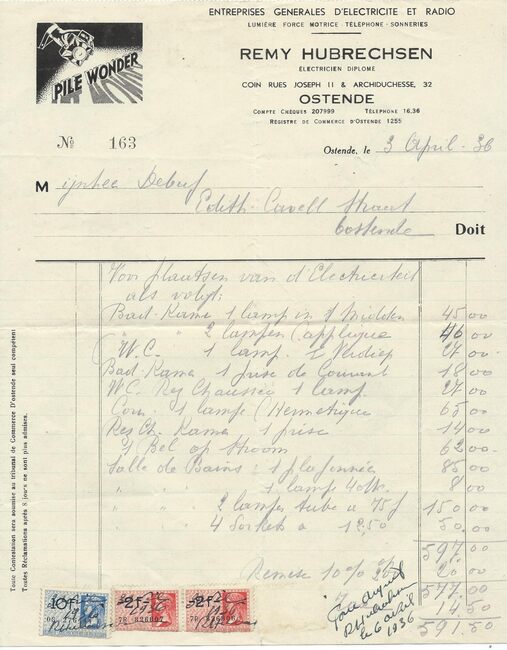 ENTREPRISES GENERALES D'ELECTRICITE ET RADIO
LUMIÈRE FORCE MOTRICE TÉLÉPHONE - SONNERIES
REMY HUBRECHSEN
ÉLECTRICIEN DIPLOMÉ
COIN RUES JOSEPH II & ARCHIDUCHESSE, 32
OSTENDE
COMPTE CHÈQUES 207999 TÉLÉPHONE 16,36
REGISTRE DE COMMERCE D'OSTENDE 1255
PILE WONDER
No 163
Ostende, le 3 April - 36
Mijnhee Debuf
Edith-Cavell Straat
Oostende Doit
Voor plaatsen van d'Electriciteit
als volgt:
Bad-Kame 1 lamp in 't Midden 45 00
" " 2 lampen (applique 46 00
W.C. 1 lamp. 1 Verdiep 27 00
Bad-Kama 1 prise de Courant 18 00
W.C. Rez Chaussée 1 lamp. 27 00
1 lampe (Hermetique 65 00
Rez Ch. Kama 1 prise 14 00
1 Bel op Stroom 62 00
Salle de Bains: 1 plafonnier 85 00
" " 1 lamp 40 8 00
" " 2 lampes tube a 75 f 150 00
" " 4 Sockets a 12.50 50 00
597 00
Remise 10% 20 00
577 00
14 50
591.50
Pour acquit
R Hubrechsen
le 6 avril
1936
10 F 2 F 2 F
Toute Contestation sera soumise au tribunal de Commerce D'ostende seul compétent
Toutes Réclamations après 8 jours ne sont plus admises.